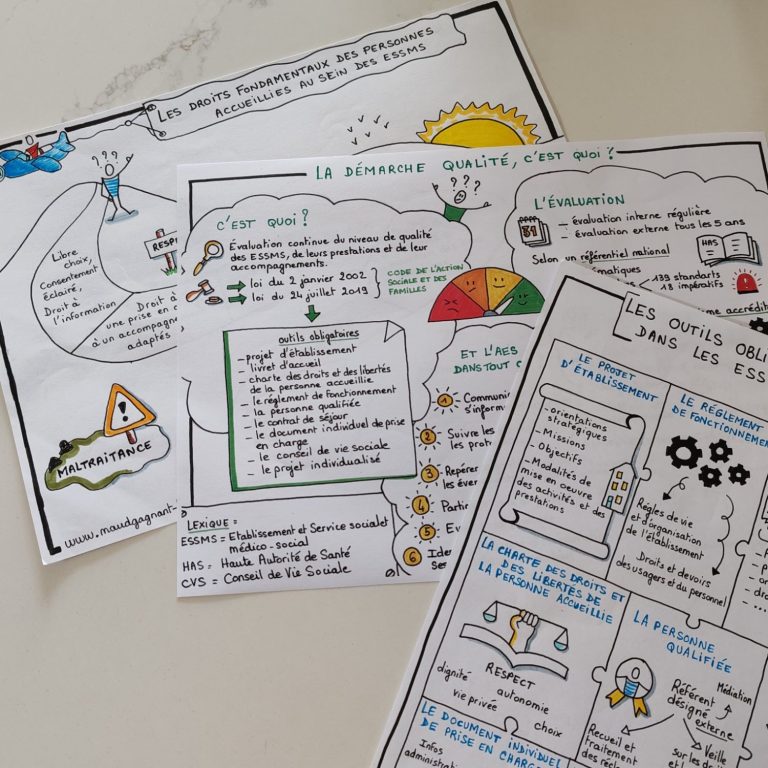 LES DROITS FONDAMENTAUX DES PERSONNES
ACCUEILLIES AU SEIN DES ESSMS
???
Libre
choix,
Consentement
éclairé,
Droit à
l'information
Droit à
une prise en
à un accompagne
adaptés
!
MALTRAITANCE
www.maudgagnant-
LA DÉMARCHE QUALITÉ, C'EST QUOI?
???
C'EST QUOI?
Évaluation continue du niveau de qualité
des ESSMS, de leurs prestations et de leur
accompagnements.
loi du 2 janvier 2002
loi du 24 juillet 2019
CODE DE L'ACTION
SOCIALE ET DES
FAMILLES
outils obligatoires
- projet d'établissement
- livret d'accueil
- charte des droits et des libertés
de la personne accueillie
- le réglement de fonctionnement
- la personne qualifiée
- le contrat de séjour
- le document individuel de prise
en charge
- le conseil de vie sociale
- le projet individualisé
LEXIQUE =
ESSMS = Etablissement et Service sociale et
médico-social
HAS = Haute Autorité de Santé
CVS = Conseil de Vie Sociale
L'ÉVALUATION
31
- évaluation interne régulière
- évaluation externe tous les 5 ans
Selon un référentiel national
HAS
139 standarts
18 impératifs
ET L'AES
DANS TOUT
1 Communi
s'inform
2 Suivre les
les prot
3 Repérer
les éver
4 Parti
5 Ev
6 Ide
Ser
LES OUTILS OBLI
DANS LES ESS
LE PROJET
D'ÉTABLISSEMENT
- orientations
stratégiques
- Missions
- Objectifs
- Modalités de
mise en oeuvre
des activités et des
prestations
LE RÉGLEMENT
DE FONCTIONNEME
Règles de vie
et d'organisation
de l'établissement
Droits et devoirs
des usagers et du personnel
LA CHARTE DES DROITS ET
DES LIBERTÉS DE
LA PERSONNE ACCUEILLIE
RESPECT
dignité
autonomie
vie privée
choix
LA PERSONNE
QUALIFIÉE
Médiation
Référent
désigné
externe
Recueil et
traitement
des réc
Veille
sur les d
LE DOCUMENT INDIVIDUEL
DE PRISE EN CHARGE
Infos
administra